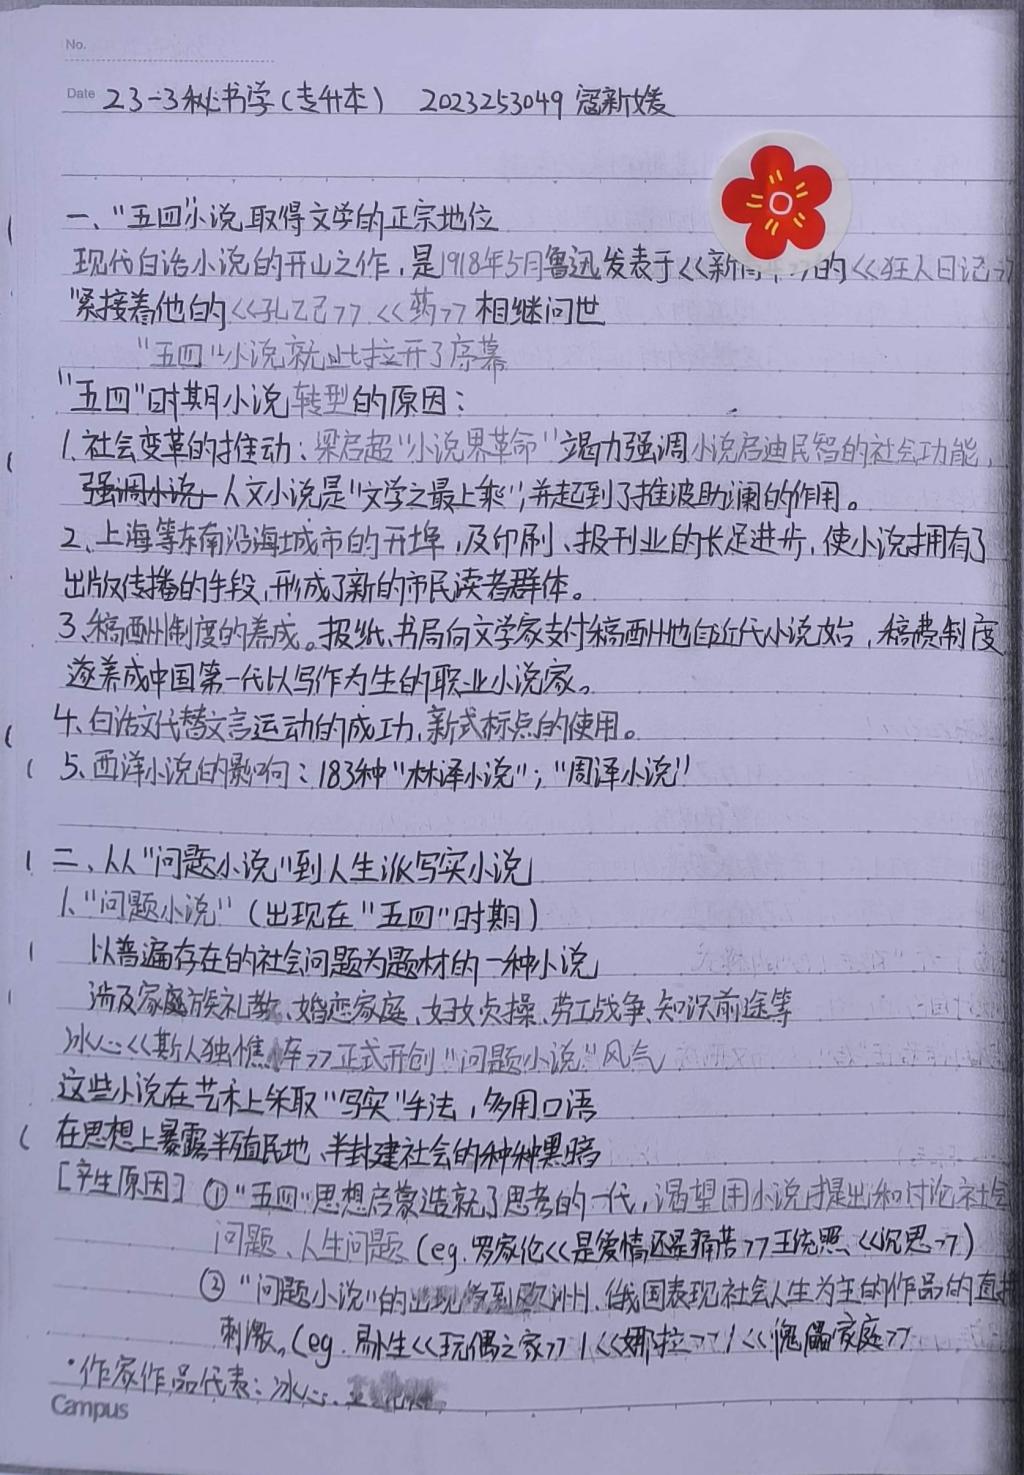 No.
Date 23-3秘书学(专升本) 2023253049 寇新媛
一、“五四”小说取得文学的正宗地位
现代白话小说的开山之作，是1918年5月鲁迅发表于<<新青年>>的<<狂人日记>>
紧接着他的<<孔乙己>> <<药>>相继问世
“五四”小说就此拉开了序幕
“五四”时期小说转型的原因：
1.社会变革的推动：梁启超“小说界革命”竭力强调小说启迪民智的社会功能，
强调小说 人文小说是“文学之最上乘”，并起到了推波助澜的作用。
2、上海等东南沿海城市的开埠，及印刷、报刊业的长足进步，使小说拥有了
出版传播的手段，形成了新的市民读者群体。
3、稿酬制度的养成。报纸、书局向文学家支付稿酬地自近代小说始，稿费制度
遂养成中国第一代以写作为生的职业小说家。
4、白话文代替文言运动的成功，新式标点的使用。
5、西洋小说的影响：183种“林泽小说”；“周泽小说”
二、从“问题小说”到人生派写实小说
1、“问题小说”(出现在“五四”时期)
以普遍存在的社会问题为题材的一种小说
涉及家庭族礼教、婚恋家庭、妇女贞操、劳工战争、知识前途等
冰心<<斯人独憔悴>>正式开创“问题小说”风气
这些小说在艺术上采取“写实”手法，多用口语
在思想上暴露半殖民地、半封建社会的种种黑暗
[产生原因] ①“五四”思想启蒙造就了思考的一代，渴望用小说提出和讨论社会
问题、人生问题(eg.罗家伦<<是爱情还是痛苦>>王统照、<<沉思>>)
②“问题小说”的出现受到欧洲、俄国表现社会人生为主的作品的直接
刺激。(eg.易卜生<<玩偶之家>>/<<娜拉>>/<<傀儡家庭>>
·作家作品代表：冰心、
Campus